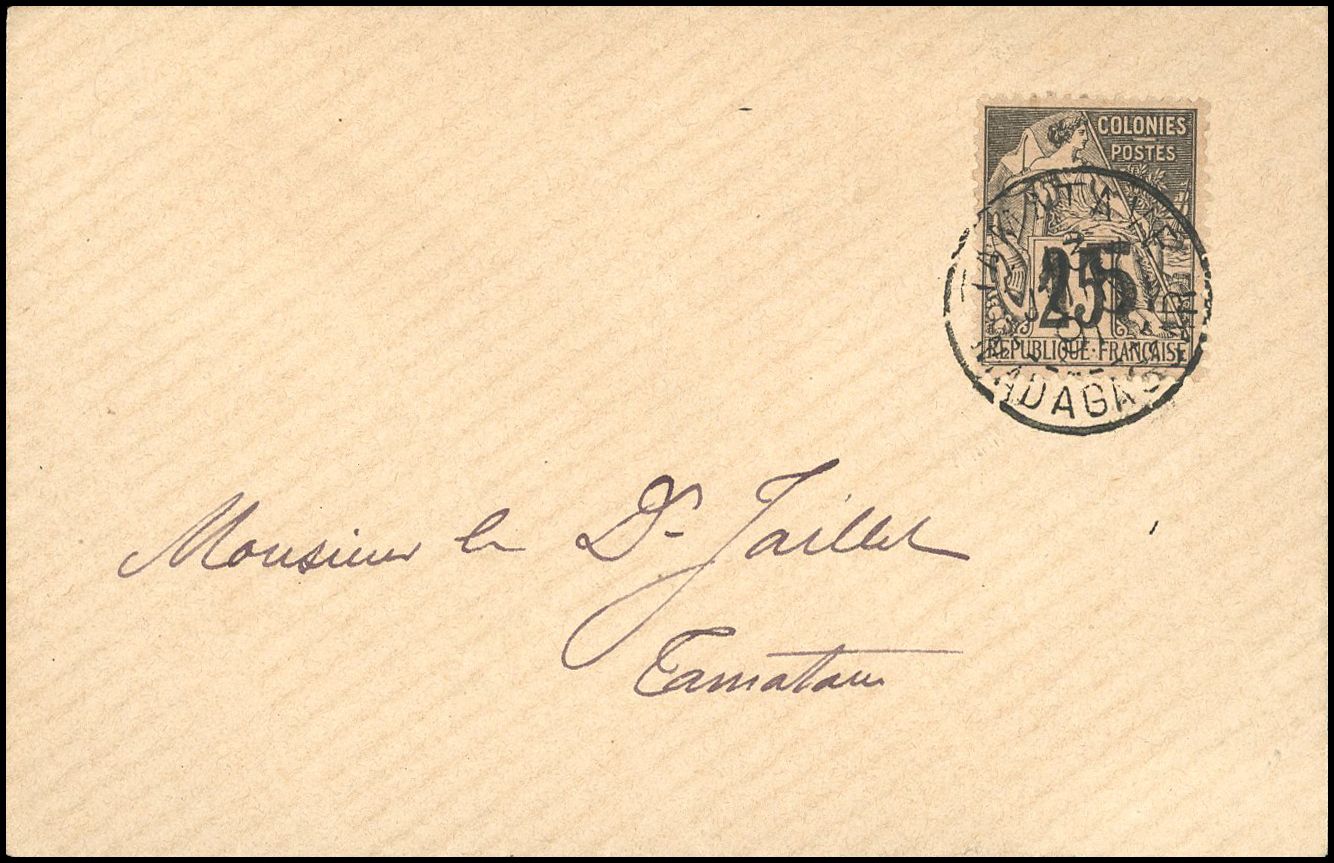 COLONIES
POSTES
25
RÉPUBLIQUE·FRANÇAISE
MADAGASCAR
Monsieur le Dr Jaillet
Tamatave